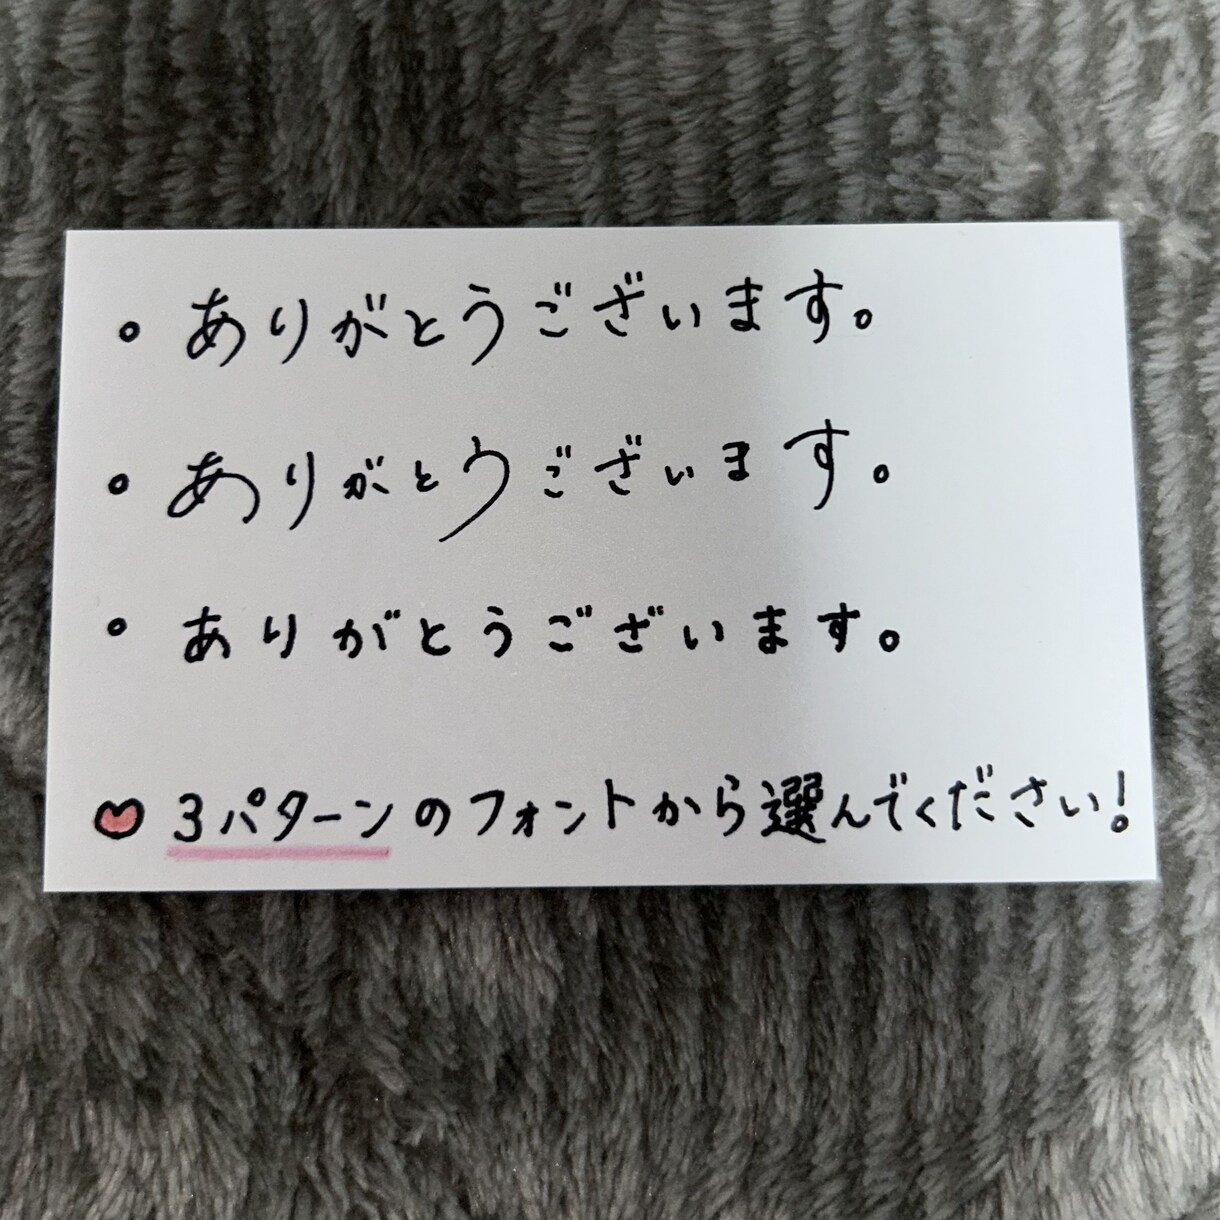 。ありがとうございます。
。ありがとうございます。
。ありがとうございます。
♥ 3パターンのフォントから選んでください!